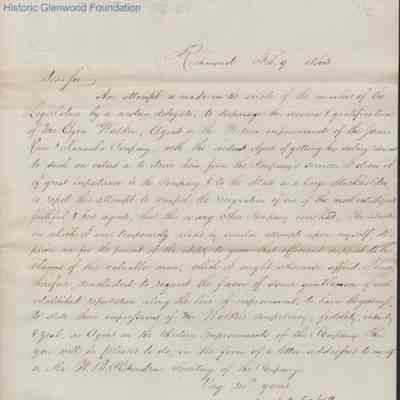 Historic Glenwood Foundation
Richmond Feb. 9
Dear Sir
An attempt is made in the circle of the members of the
Legislature by a certain delegate, to disparage the services & qualifications
of Mr Ezra Walker, Agent on the Western improvements of the James
River & Kanawha Company, with the evident object of getting his salary reduced
to such an extent as to drive him from the Company's service. I deem it
of great importance to the Company & to the State as a large Stockholder
to repel this attempt to compel the resignation of one of the most intelligent
faithful & best agents, that this or any other Company ever had. The
in which I am temporarily placed by similar attempts upon myself,
me for the present of the ability to give that efficient support to the
claims of this valuable man, which I might otherwise afford. I have
therefore, concluded to request the favor of some gentlemen of well
established reputation along the line of improvement, to have the goodness,
to state their impressions of Mr Walker's competency, fidelity,
& zeal, as Agent on the Western Improvements of the Company. This
you will be pleased to do, in the form of a letter addressed to myself
or Mr. W. B. Chittenden Secretary of the Company.
Very yours